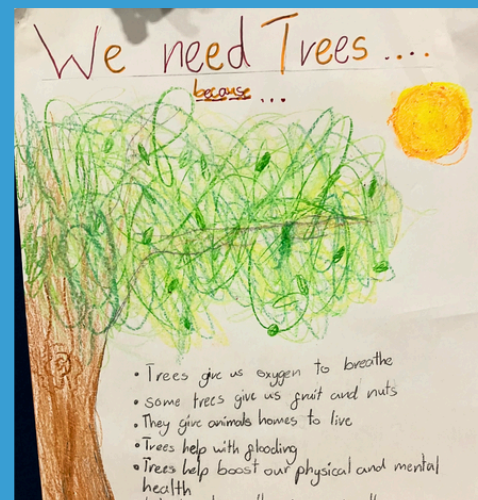 We need Trees ....
because ...
• Trees give us oxygen to breathe
• some trees give us fruit and nuts
• They give animals homes to live
• Trees help with flooding
• Trees help boost our physical and mental
health